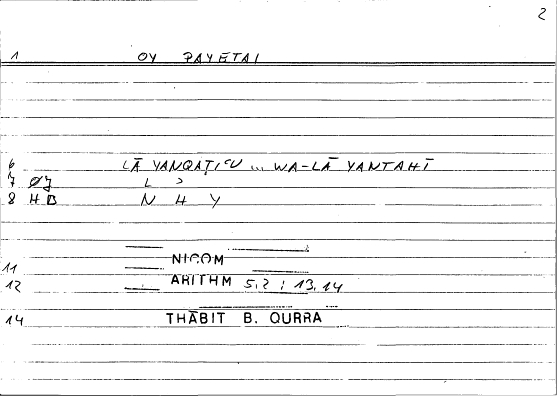 2
1 OY PAYETAI
6 LĀ YANQAṬIʿU ... WA-LĀ YANTAHĪ
7 L
8 N H Y
11 NICOM
12 ARITHM 5,2 ; 13,14
14 THĀBIT B. QURRA